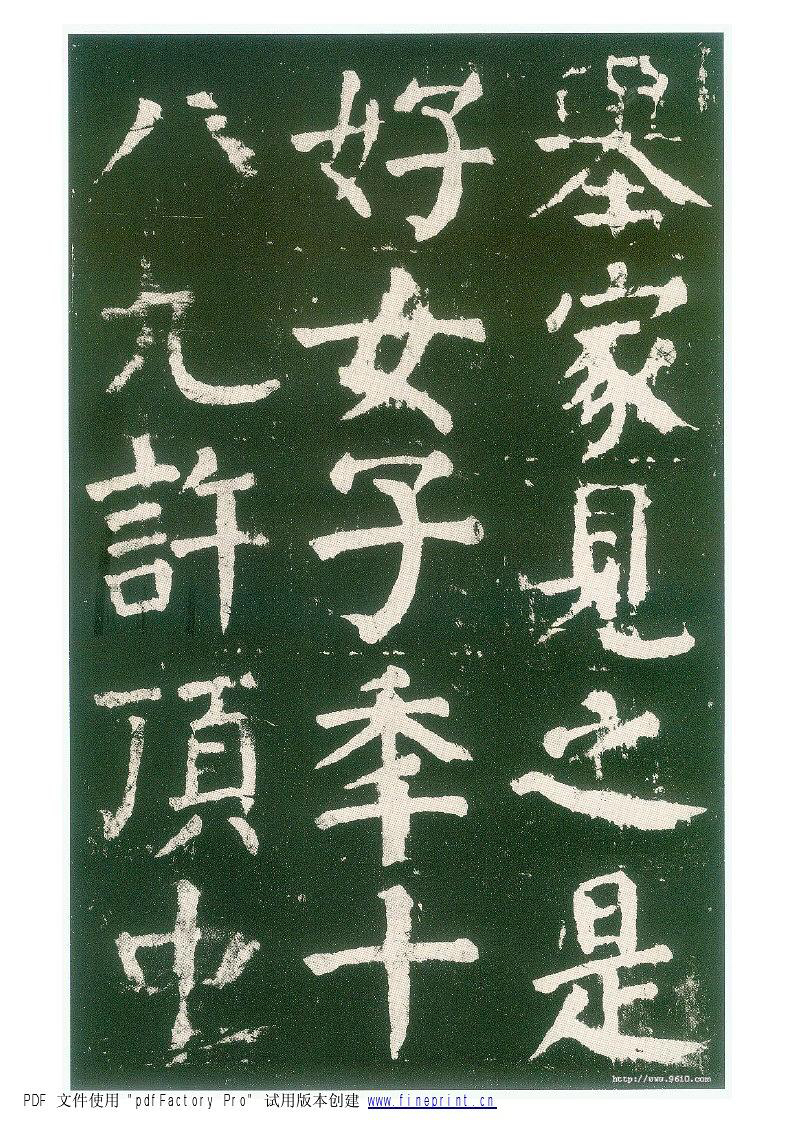 舉家見之是
好女子秊十
八九許頂中
http://www.9610.com
PDF 文件使用 "pdfFactory Pro" 试用版本创建 www.fineprint.cn